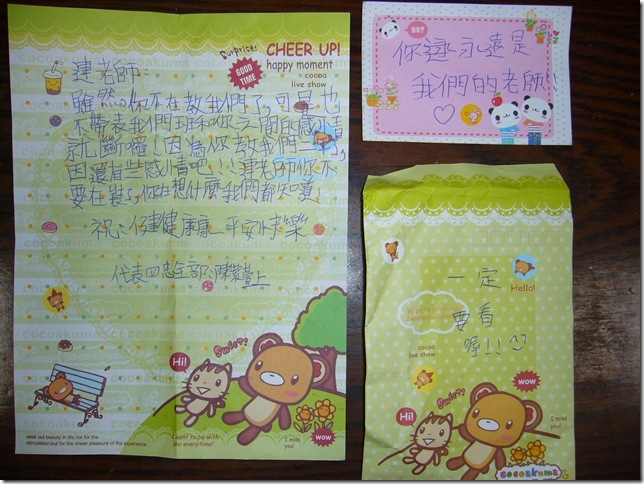 Surprise!
CHEER UP!
GOOD TIME
happy moment
cocoa
live show
連老師：
雖然，你不在教我們了，可是也
不帶表我們班和你之間的感情
就斷囉！因為你教我們
因還有些感情吧！！連老師你不
要在裝了，你在想什麼我們都知道！
祝：健健康康、平安快樂
代表四忠全部：陳 上
cocoakuma
Sweet!
Hi!
I want to be with
you everytime!
I miss
you!
WOW
seek out beauty in life not for the
stimulation,but for the sheer pleasure of the experience.
你永遠是
我們的老師!!
一定
Hello!
要看
喔!!
cocoa
live show
Sweet!
WOW
Hi!
I miss
you!
Cocoakuma